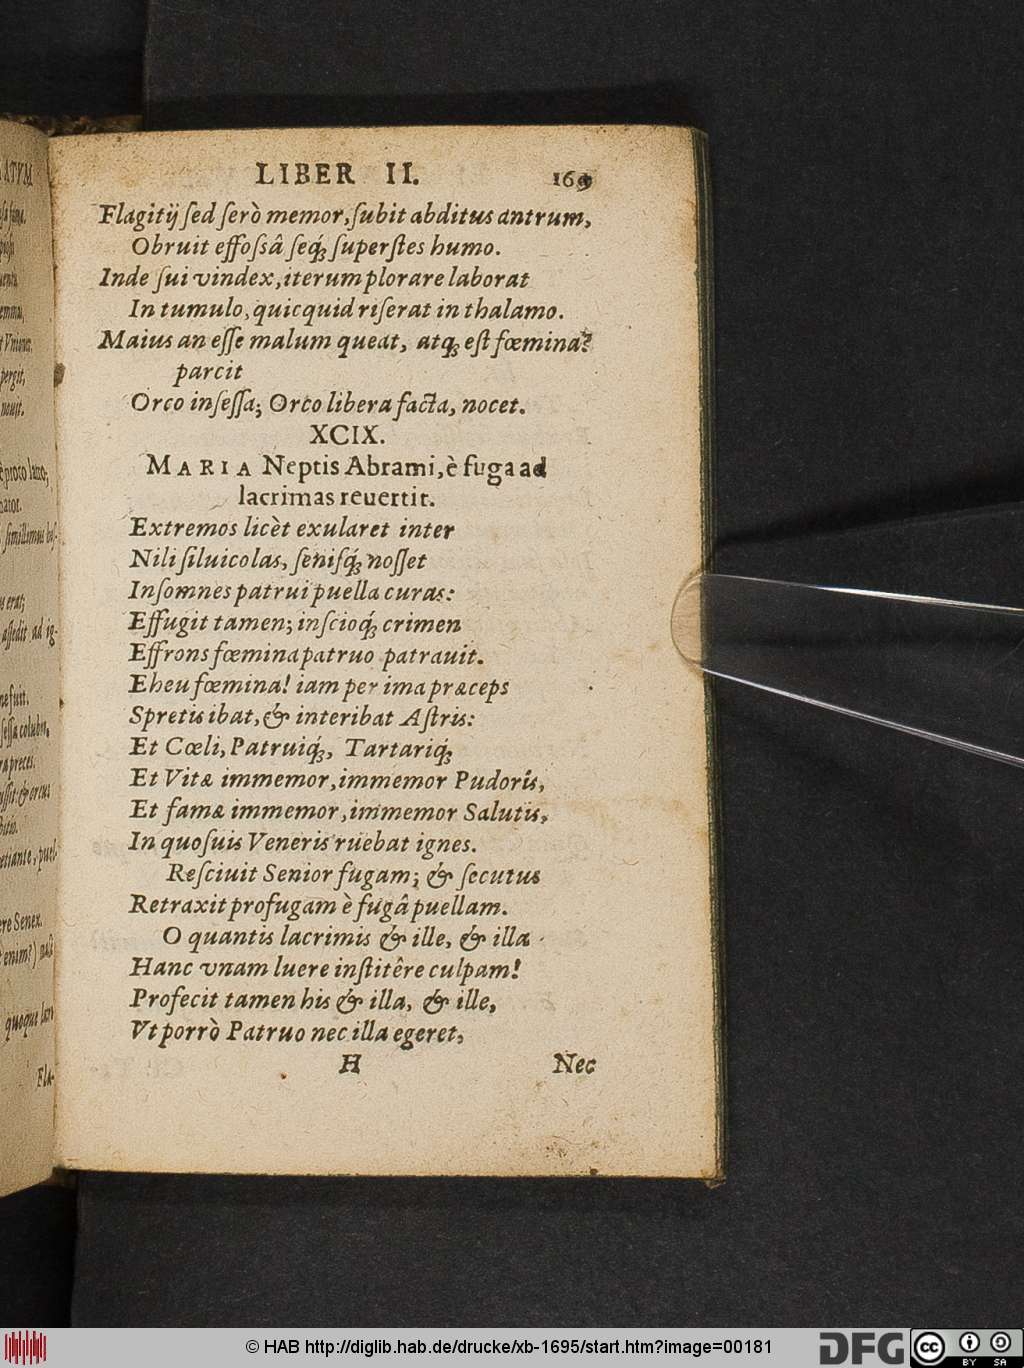 LIBER II. 169
Flagitij ſed ſerò memor, ſubit abditus antrum,
Obruit effoſsâ ſeq́; ſuperſtes humo.
Inde ſui vindex, iterum plorare laborat
In tumulo, quicquid riſerat in thalamo.
Maius an eſſe malum queat, atq; eſt fœmina?
parcit
Orco inſeſſa; Orco libera facta, nocet.
XCIX.
MARIA Neptis Abrami, è fuga ad
lacrimas reuertit.
Extremos licèt exularet inter
Nili ſiluicolas, ſeniſq́; noſſet
Inſomnes patrui puella curas:
Effugit tamen; inſcioq́; crimen
Effrons fœmina patruo patrauit.
Eheu fœmina! iam per ima præceps
Spretis ibat, & interibat Aſtris:
Et Cœli, Patruiq́;, Tartariq́;
Et Vitæ immemor, immemor Pudoris,
Et famæ immemor, immemor Salutis,
In quoſuis Veneris ruebat ignes.
Reſciuit Senior fugam; & ſecutus
Retraxit profugam è fugâ puellam.
O quantis lacrimis & ille, & illa
Hanc vnam luere inſtitêre culpam!
Profecit tamen his & illa, & ille,
Vt porrò Patruo nec illa egeret,
H Nec
© HAB http://diglib.hab.de/drucke/xb-1695/start.htm?image=00181
DFG
cc BY SA